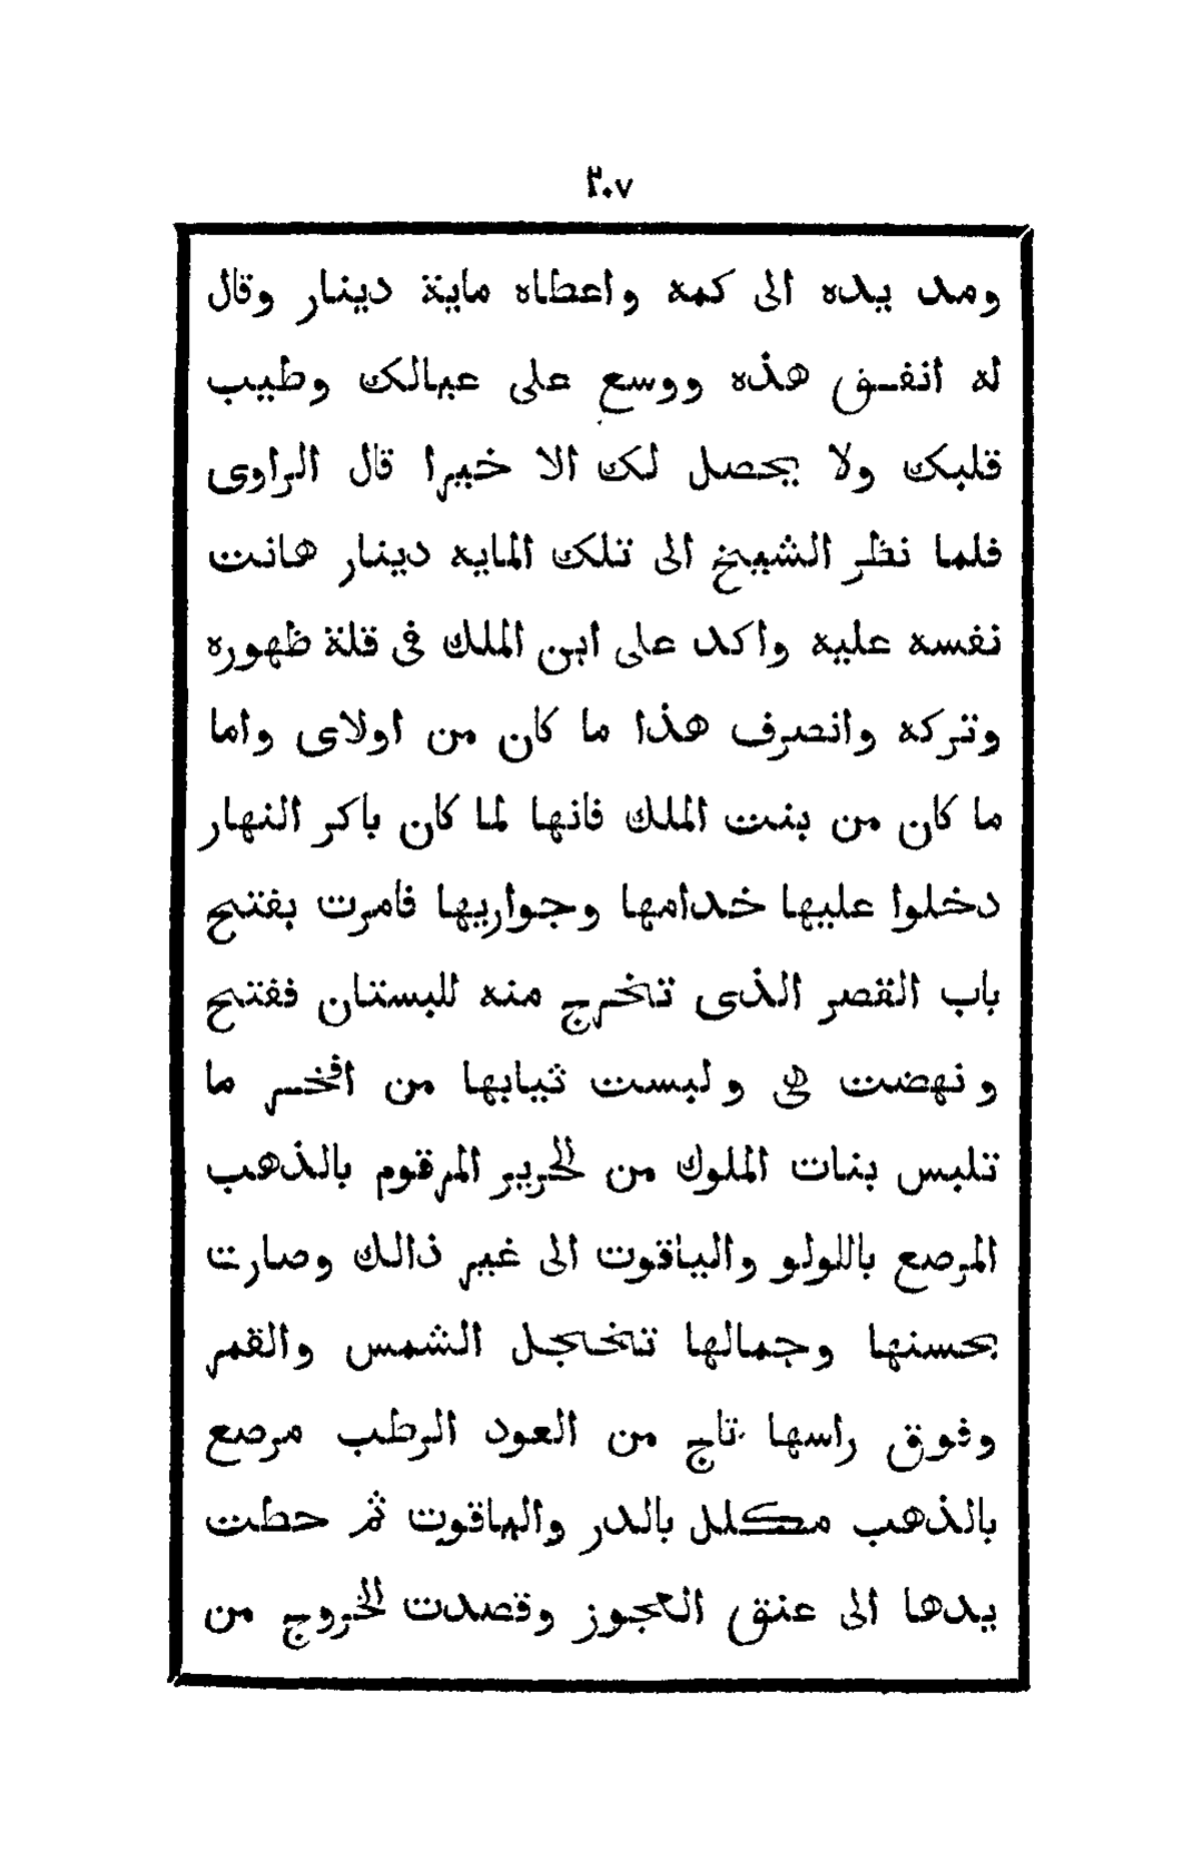 ٢٠٧
ومد يده الى كمه واعطاه ماية دينار وقال
له انفق هذه ووسع على عيالك وطيب
قلبك ولا يحصل لك الا خيرا قال الراوى
فلما نظر الشيخ الى تلك المايه دينار هانت
نفسه عليه واكد على ابن الملك فى قلة ظهوره
وتركه وانصرف هذا ما كان من اولاى واما
ما كان من بنت الملك فانها لما كان باكر النهار
دخلوا عليها خدامها وجواريها فامرت بفتح
باب القصر الذى تخرج منه للبستان ففتح
ونهضت هى ولبست ثيابها من افخر ما
تلبس بنات الملوك من الحرير المرقوم بالذهب
المرصع باللولو والياقوت الى غير ذالك وصارت
بحسنها وجمالها تخجل الشمس والقمر
وفوق راسها تاج من العود الرطب مرصع
بالذهب مكلل بالدر والياقوت ثم حطت
يدها الى عنق العجوز وقصدت الخروج من